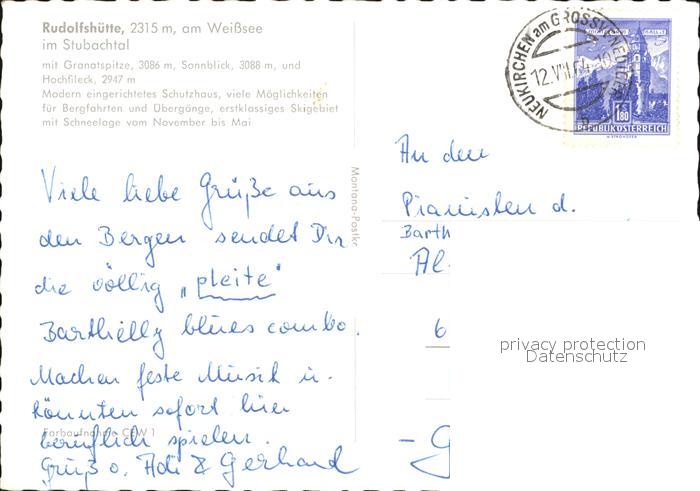 Rudolfshütte, 2315 m, am Weißsee
im Stubachtal
mit Granatspitze, 3086 m, Sonnblick, 3088 m, und
Hochfileck, 2947 m
Modern eingerichtetes Schutzhaus, viele Möglichkeiten
für Bergfahrten und Übergänge, erstklassiges Skigebiet
mit Schneelage vom November bis Mai
Viele liebe Grüße aus
den Bergen sendet Dir
die völlig „pleite"
Barthielly blues combo.
Machen feste Musik u.
könnten sofort hier
beruflich spielen.
Grüß o. Adi & Gerhard
Farbaufnahme CEW 1
Montana-Postkr
NEUKIRCHEN am GROSSVENEDIGER
12.VIII.64
b
1.80
REPUBLIK ÖSTERREICH
An den
Pianisten d.
Barth
Al
6
privacy protection
Datenschutz
- G